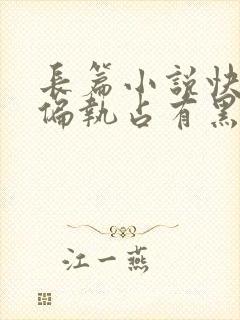 長篇小說快
偏執占有黑
江一燕